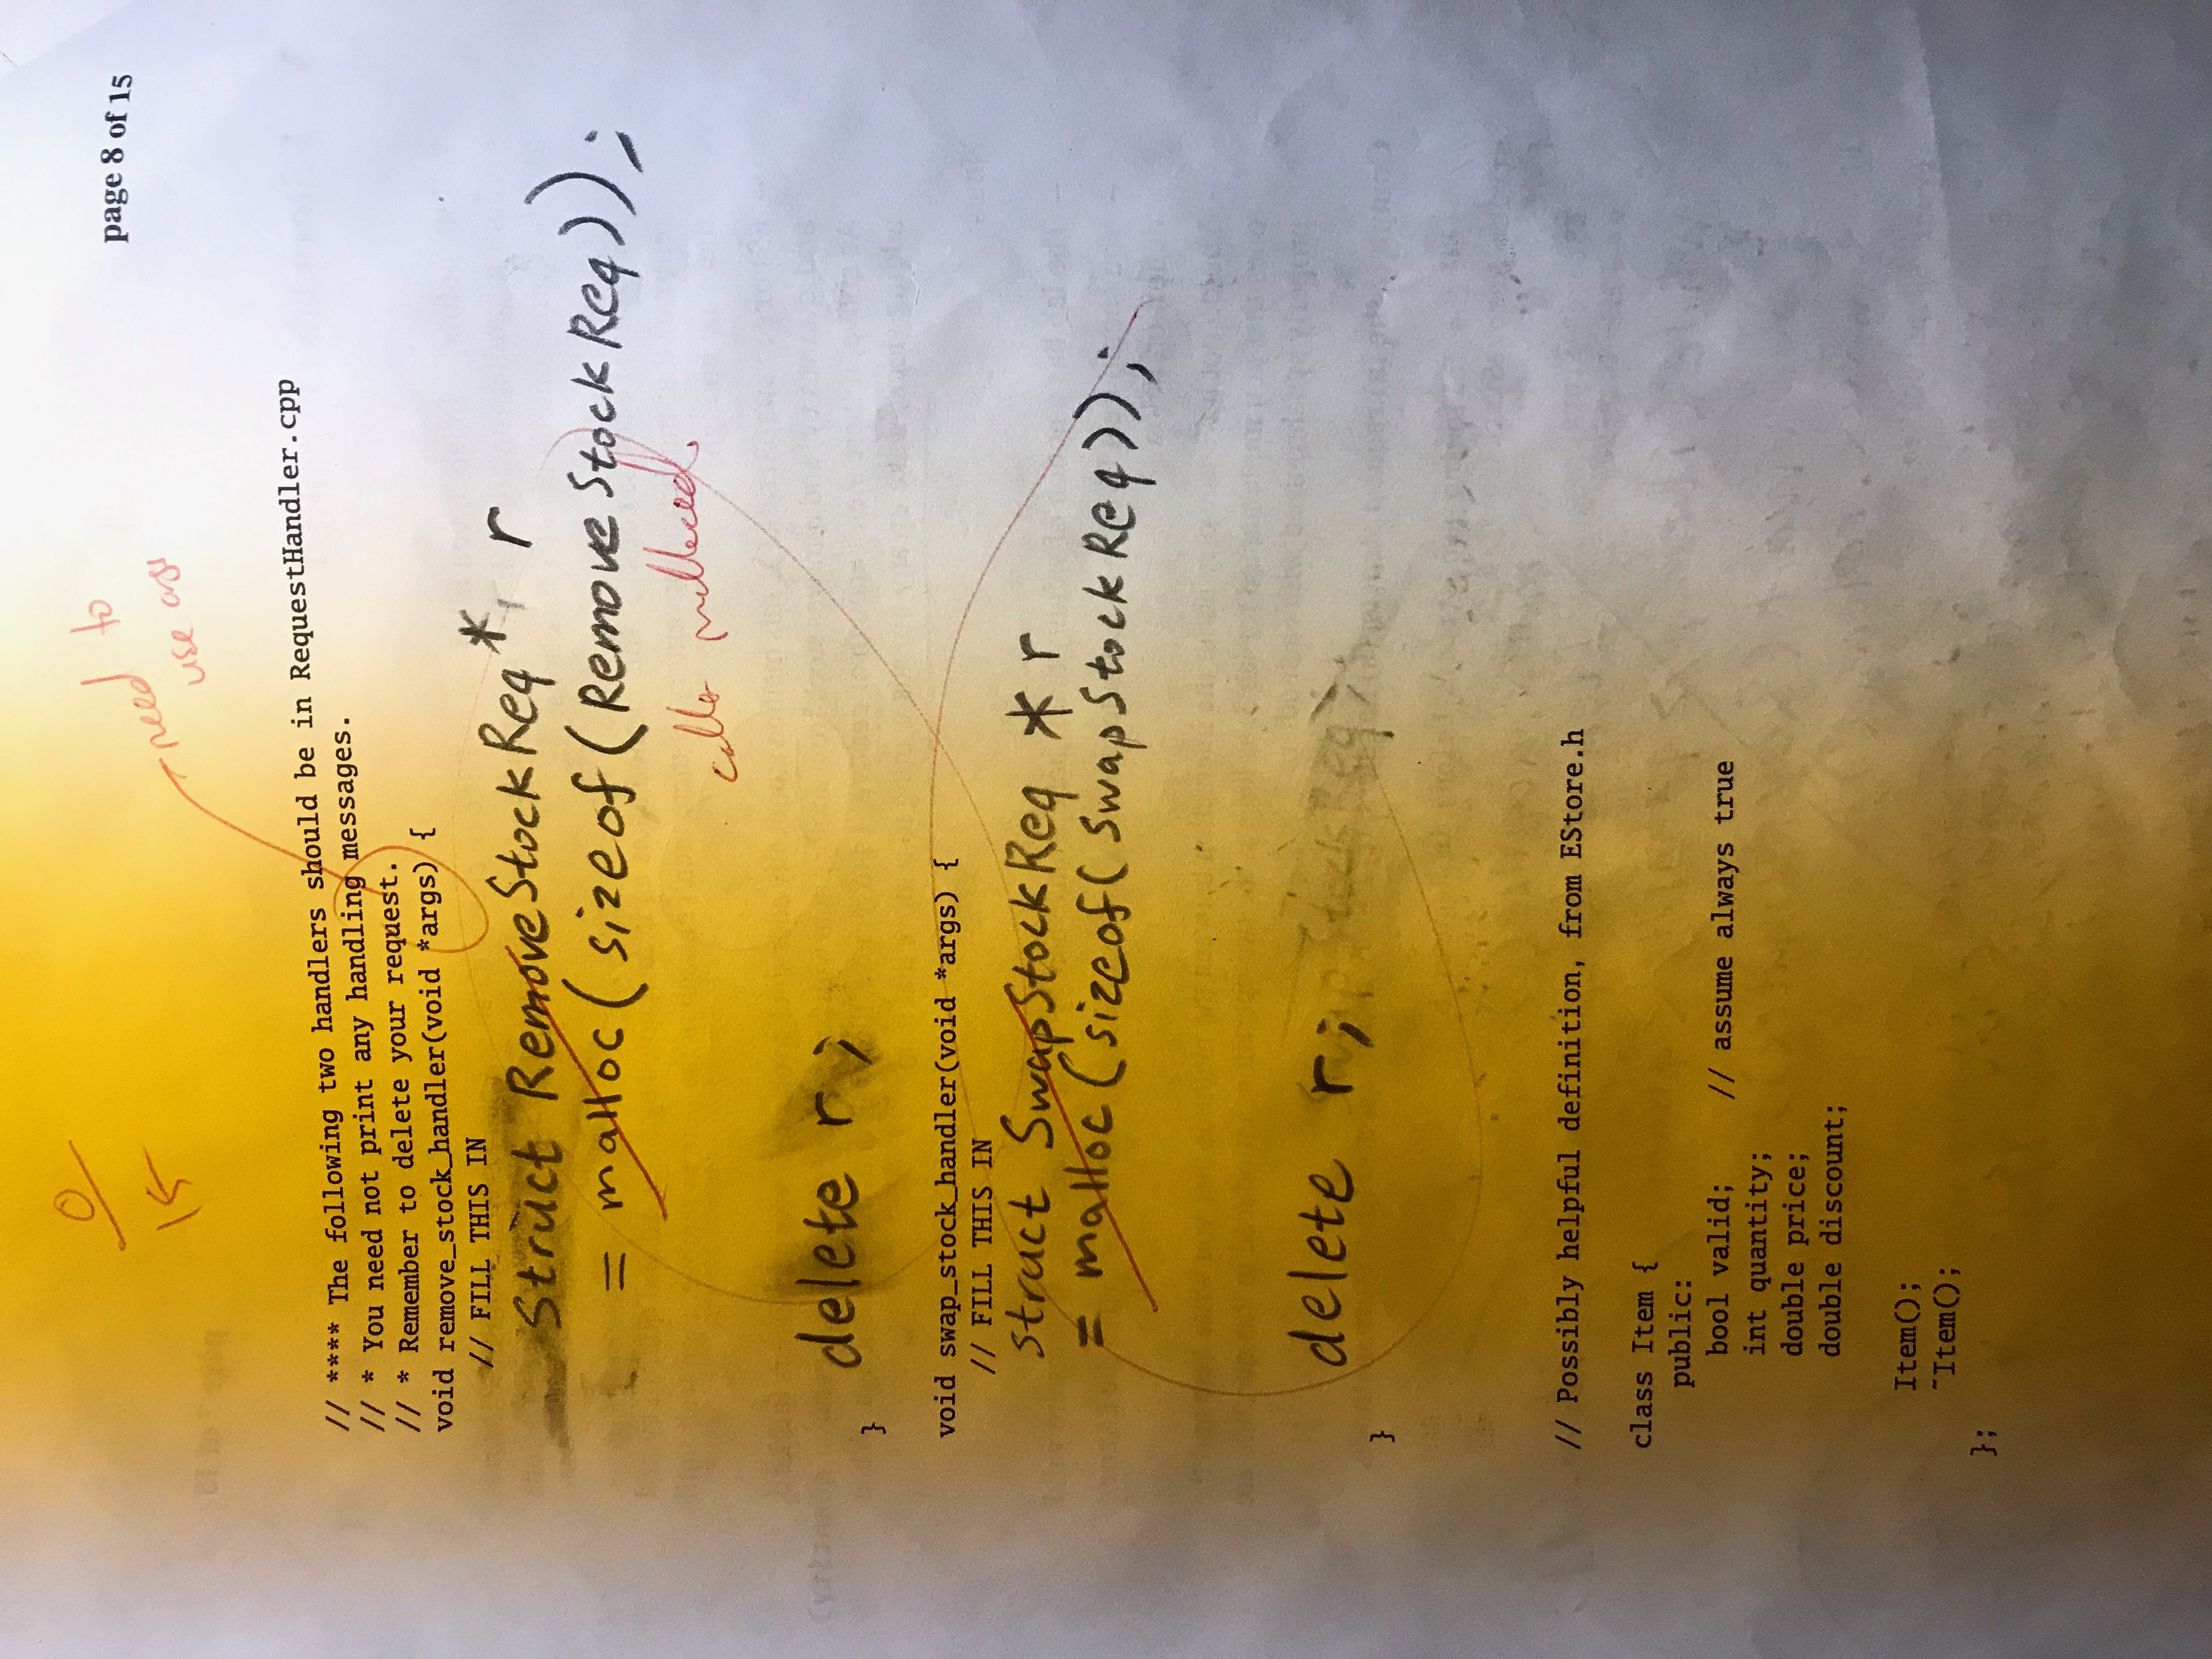 0
15
need to
use args
page 8 of 15
// **** The following two handlers should be in RequestHandler.cpp
// * You need not print any handling messages.
// * Remember to delete your request.
void remove_stock_handler(void *args) {
// FILL THIS IN
Struct RemoveStockReq* r
= malloc(sizeof(RemoveStockReq));
caller malloced.
delete r;
}
void swap_stock_handler(void *args) {
// FILL THIS IN
struct SwapStockReq * r
= malloc(sizeof(SwapStockReq));
delete r;
}
// Possibly helpful definition, from EStore.h
class Item {
public:
bool valid; // assume always true
int quantity;
double price;
double discount;
Item();
~Item();
};